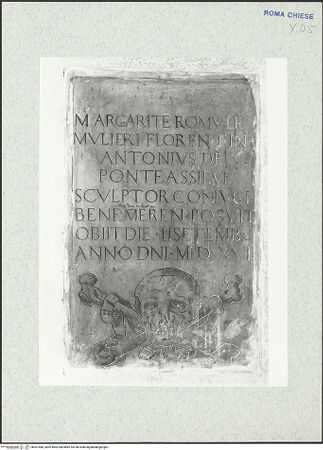 ROMA CHIESE
405
MARGARITE ROMVLE
MVLIERI FLORENTIN
ANTONIVS DEL
PONTEASSIEVE
SCVLPTOR CONIVGI
BENEMEREN·POSVIT
OBIIT DIE·II SETEMB
ANNO DNI·M·D·XVI